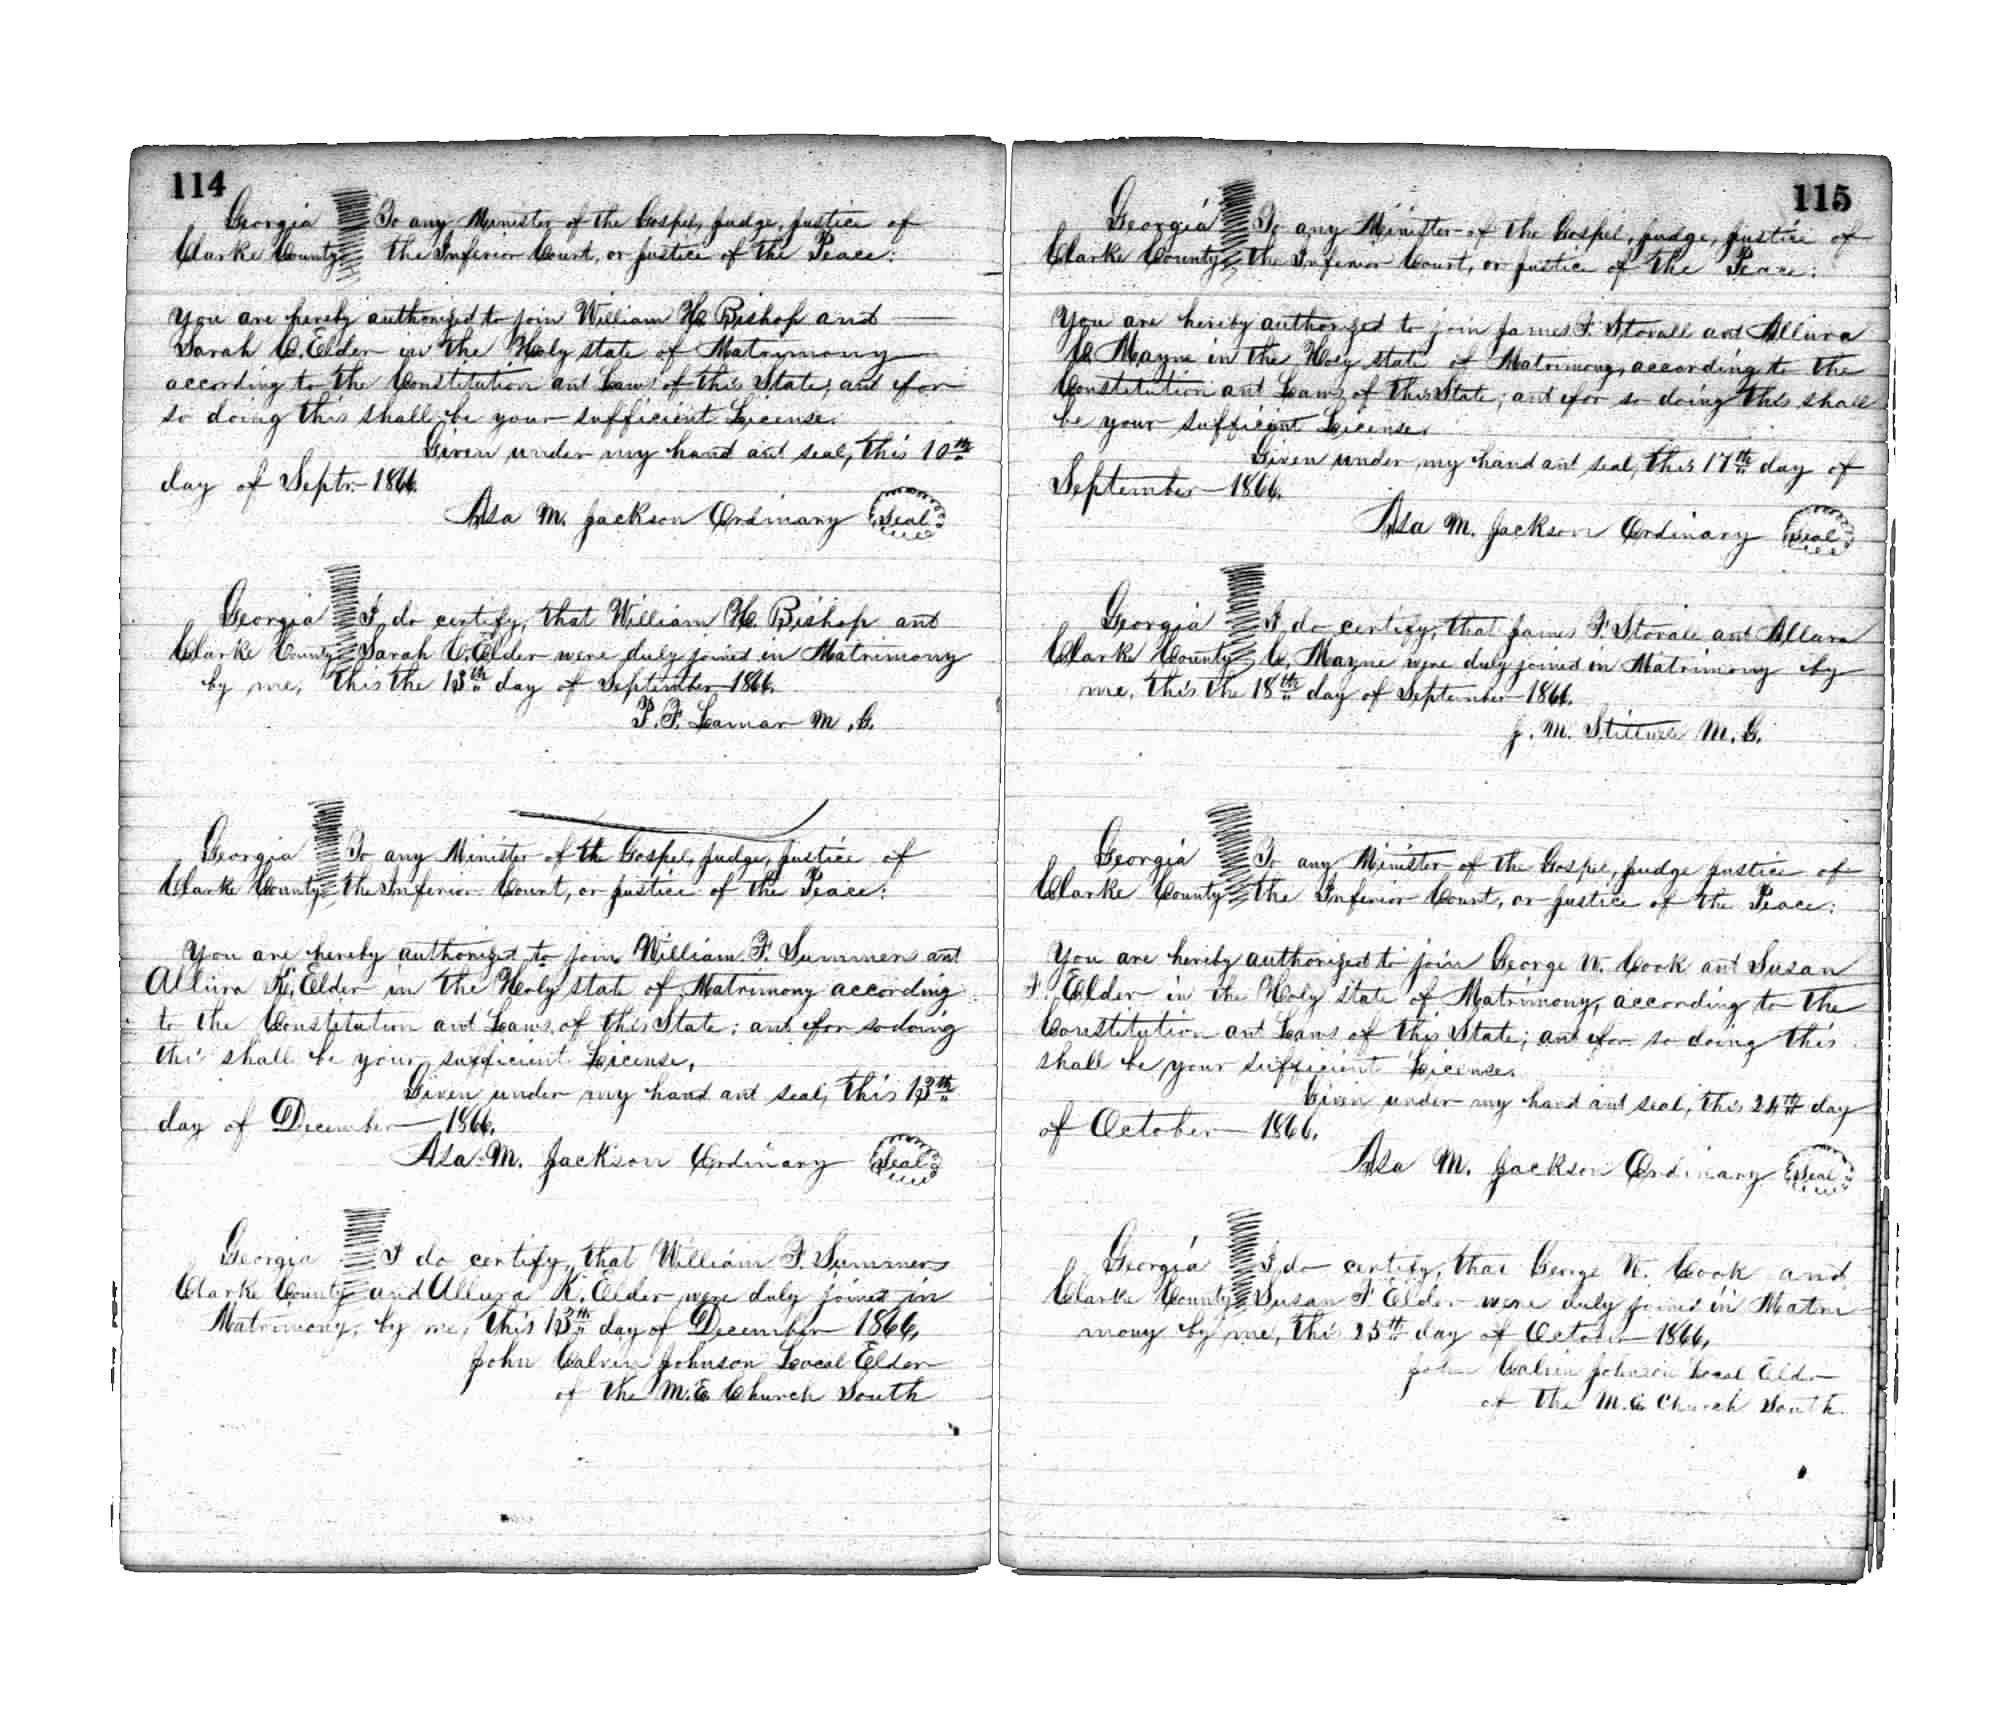 114
Georgia To any Minister of the Gospel, Judge, Justice of
Clarke County the Inferior Court, or Justice of the Peace:
You are hereby authorized to join William H. Bishop and
Sarah C. Elder in the Holy state of Matrimony
according to the Constitution and Laws of this State; and for
so doing this shall be your sufficient License.
Given under my hand and seal, this 10th
day of Septr. 1866.
Asa M. Jackson Ordinary Seal
Georgia I do certify, that William H. Bishop and
Clarke County Sarah C. Elder were duly joined in Matrimony
by me, this the 13th day of September 1866.
P. F. Lamar M. G.
Georgia To any Minister of the Gospel, Judge, Justice of
Clarke County the Inferior Court, or Justice of the Peace:
You are hereby authorized to join William F. Summers and
Allura K. Elder in the Holy state of Matrimony according
to the Constitution and Laws, of this State; and for so doing
this shall be your sufficient License,
Given under my hand and seal, this 13th
day of December 1866.
Asa M. Jackson Ordinary Seal
Georgia I do certify, that William F. Summers
Clarke County and Allura K. Elder were duly joined in
Matrimony, by me, this 13th day of December 1866,
John Calvin Johnson Local Elder
of the M. E. Church South
115
Georgia To any Minister of the Gospel, Judge, Justice of
Clarke County the Inferior Court, or Justice of the Peace:
You are hereby authorized to join James F. Stovall and Allura
C. Mayne in the Holy state of Matrimony, according to the
Constitution and Laws, of this State; and for so doing this shall
be your sufficient License.
Given under my hand and seal, this 17th day of
September 1866.
Asa M. Jackson Ordinary Seal
Georgia I do certify, that James F. Stovall and Allura
Clarke County C. Mayne were duly joined in Matrimony by
me, this the 18th day of September 1866.
J. M. Stillwell M. G.
Georgia To any Minister of the Gospel, Judge Justice of
Clarke County the Inferior Court, or Justice of the Peace:
You are hereby authorized to join George W. Cook and Susan
F. Elder in the Holy state of Matrimony, according to the
Constitution and Laws of this State; and for so doing this
shall be your sufficient License.
Given under my hand and seal, this 24th day
of October 1866.
Asa M. Jackson Ordinary Seal
Georgia I do certify, that George W. Cook and
Clarke County Susan F Elder were duly joined in Matri
mony by me, this 25th day of October 1866,
John Calvin Johnson Local Elder
of the M. E. Church South.